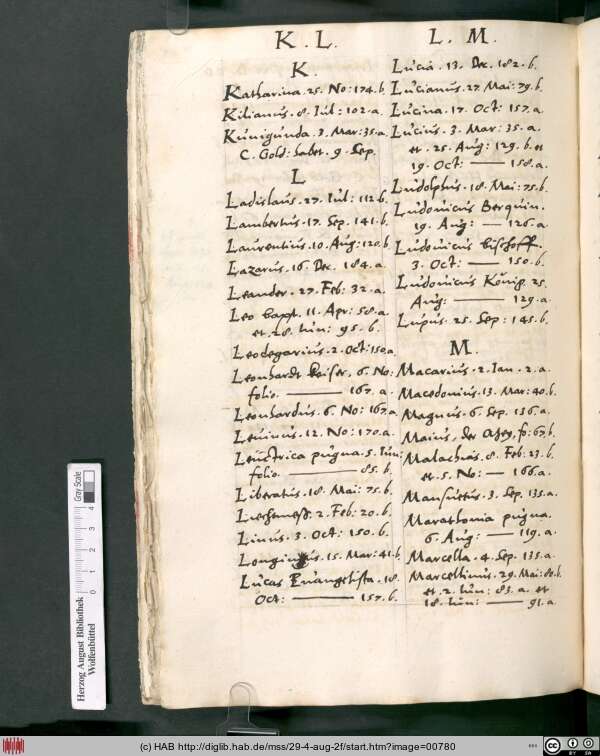 K. L.
K.
Katharina. 25. No: 174. b.
Kilianus. 8. Iul: 102. a.
Kunigunda. 3. Mar: 35. a.
C. Gold: habet. 9. Sep.
L
Ladislaus. 27. Iul: 112. b.
Lambertus. 17. Sep. 141. b.
Laurentius. 10. Aug: 120. b.
Lazarus. 16. Dec. 184. a.
Leander. 27. Feb: 32. a.
Leo bapst. 11. Apr: 58. a.
et. 28. Iun: 95. b.
Leodegarius. 2. Oct: 150. a.
Leonhardt Keiser, 6. No:
folio. 167. a.
Leonhardus. 6. No: 167. a.
Leuinus. 12. No: 170. a.
Leuctrica pugna. 5. Iun:
folio. 85. b.
Liberatus. 18. Mai: 75. b.
Liechtmess. 2. Feb: 20. b.
Linus. 3. Oct: 150. b.
Longinus. 15. Mar: 41. b.
Lucas Euangelista. 18.
Oct: 157. b.
L. M.
Lucia. 13. Dec. 182. b.
Lucianus. 27. Mai: 79. b.
Lucina. 17. Oct: 157. a.
Lucius. 3. Mar: 35. a.
et. 25. Aug: 129. b. et
19. Oct: 158. a.
Ludolphus. 18. Mai: 75. b.
Ludouicus Berquin.
19. Aug: 126. a.
Ludouicus bischoff.
3. Oct: 150. b.
Ludouicus König. 25.
Aug: 129. a.
Lupus. 25. Sep: 145. b.
M.
Macarius. 2. Ian. 2. a.
Macedonius. 13. Mar: 40. b.
Magnus. 6. Sep. 136. a.
Maius, der fo: 67. b.
Malachias. 8. Feb: 23. b.
et. 5. No: 166. a.
Mansuetus. 3. Sep. 135. a.
Marathonia pugna.
6. Aug: 119. a.
Marcella. 4. Sep. 135. a.
Marcellinus. 29. Mai: 80. b.
et. 2. Iun: 83. a. et
18. Iun: 91. a.
Gray Scale
0 1 2 3 4
Herzog August Bibliothek
Wolfenbüttel
(c) HAB http://diglib.hab.de/mss/29-4-aug-2f/start.htm?image=00780
CC BY SA